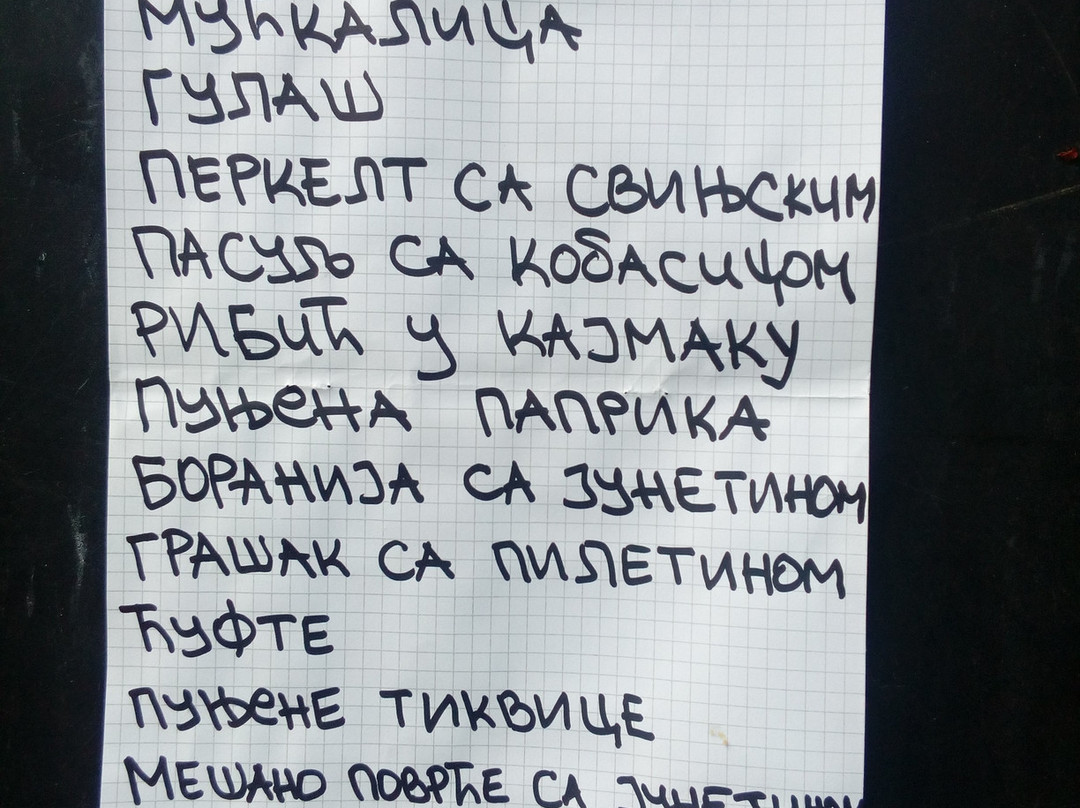 МУЋКАЛИЦА
ГУЛАШ
ПЕРКЕЛТ СА СВИЊСКИМ
ПАСУЉ СА КОБАСИЦОМ
РИБИЋ У КАЈМАКУ
ПУЊЕНА ПАПРИКА
БОРАНИЈА СА ЈУНЕТИНОМ
ГРАШАК СА ПИЛЕТИНОМ
ЋУФТЕ
ПУЊЕНЕ ТИКВИЦЕ
МЕШАНО ПОВРЋЕ СА ЈУНЕТИНОМ